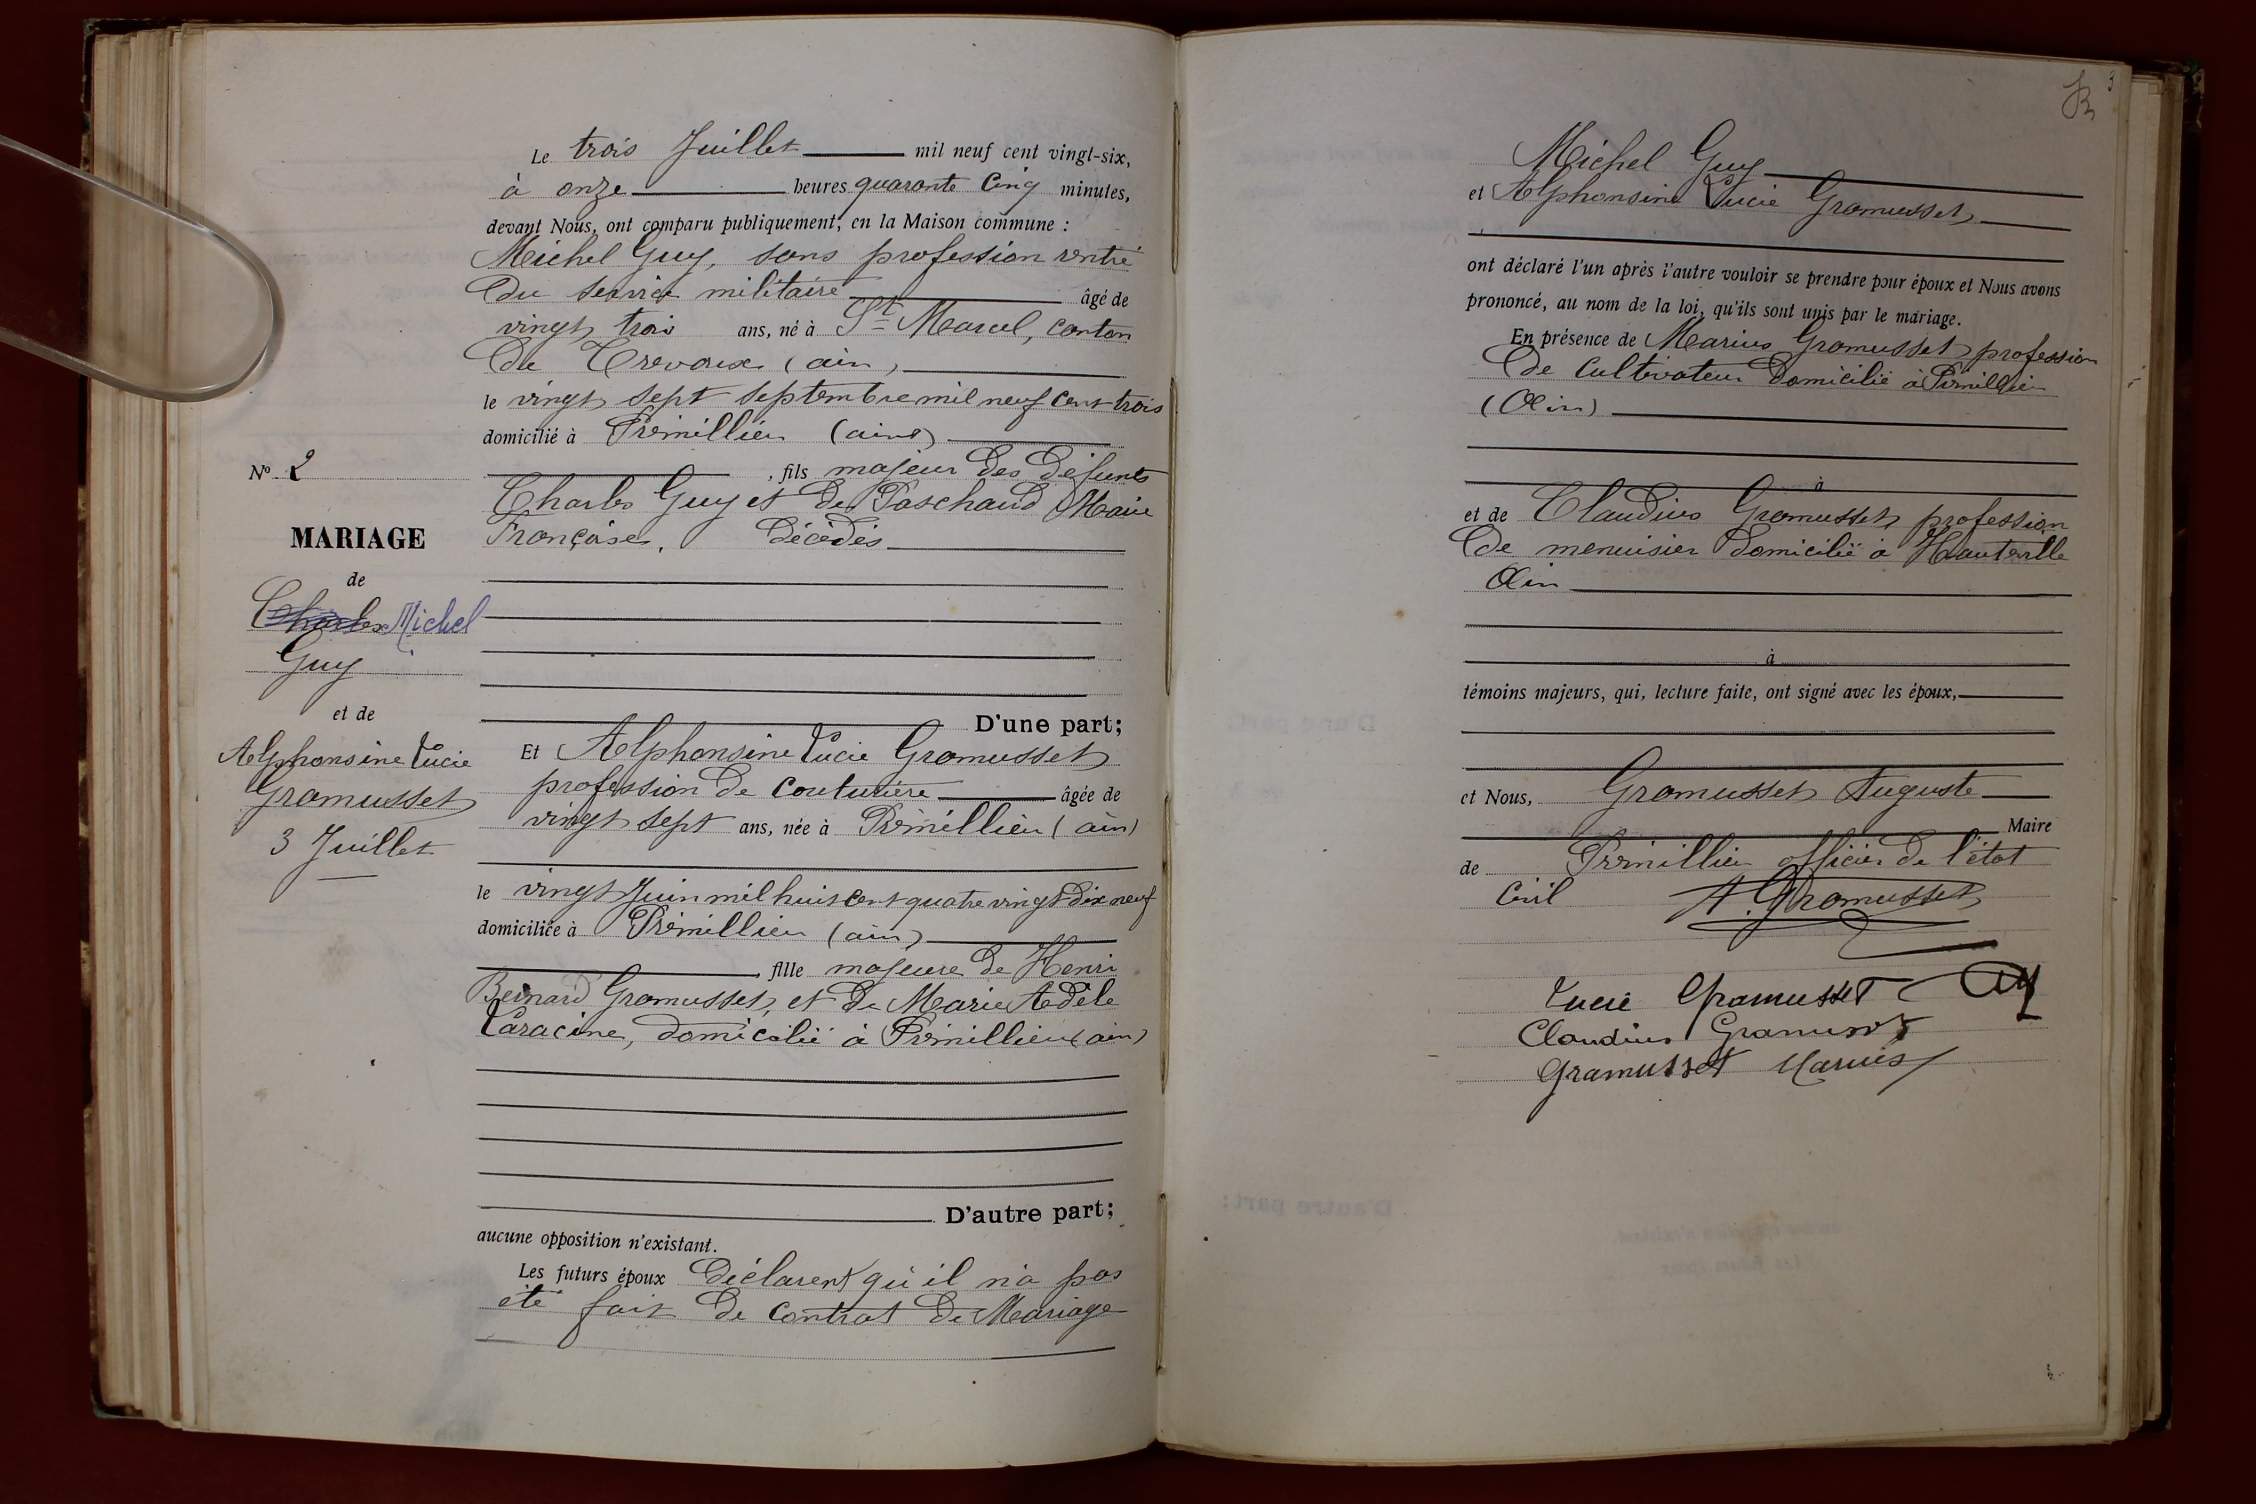 Le trois Juillet mil neuf cent vingt-six,
à onze heures quarante cinq minutes,
devant Nous, ont comparu publiquement, en la Maison commune :
Michel Guy, sans profession rentré
du service militaire âgé de
vingt trois ans, né à St Marcel, canton
de Trevoux (ain)
le vingt sept septembre mil neuf cent trois
domicilié à Prémillieu (ain)
, fils majeur des défunts
Charles Guy et de Paschaud Marie
Françoise, décédés
No 2
MARIAGE
de
Charles Michel
Guy
et de
Alphonsine Lucie
Gromusset
3 Juillet
D'une part;
Et Alphonsine Lucie Gromusset
profession de couturière âgée de
vingt sept ans, née à Prémillieu (ain)
le vingt Juin mil huit cent quatre vingt dix neuf
domiciliée à Prémillieu (ain)
, fille majeure de Henri
Bernard Gromusset, et de Marie Adèle
Laracine, domicilié à Prémillieu (ain)
D'autre part;
aucune opposition n'existant.
Les futurs époux déclarent qu'il n'a pas
été fait de contrat de Mariage
3
Michel Guy
et Alphonsine Lucie Gromusset
ont déclaré l'un après l'autre vouloir se prendre pour époux et Nous avons
prononcé, au nom de la loi, qu'ils sont unis par le mariage.
En présence de Marius Gromusset profession
de cultivateur domicilié à Prémillieu
(Ain)
à
et de Claudius Gromusset profession
de menuisier domicilié à Hauteville
Ain
à
témoins majeurs, qui, lecture faite, ont signé avec les époux,
et Nous, Gromusset Auguste
Maire
de Prémillieu officier de l'état
civil A. Gromusset
Lucie Gramusset
Claudius Gramusset
Gramusset Marius